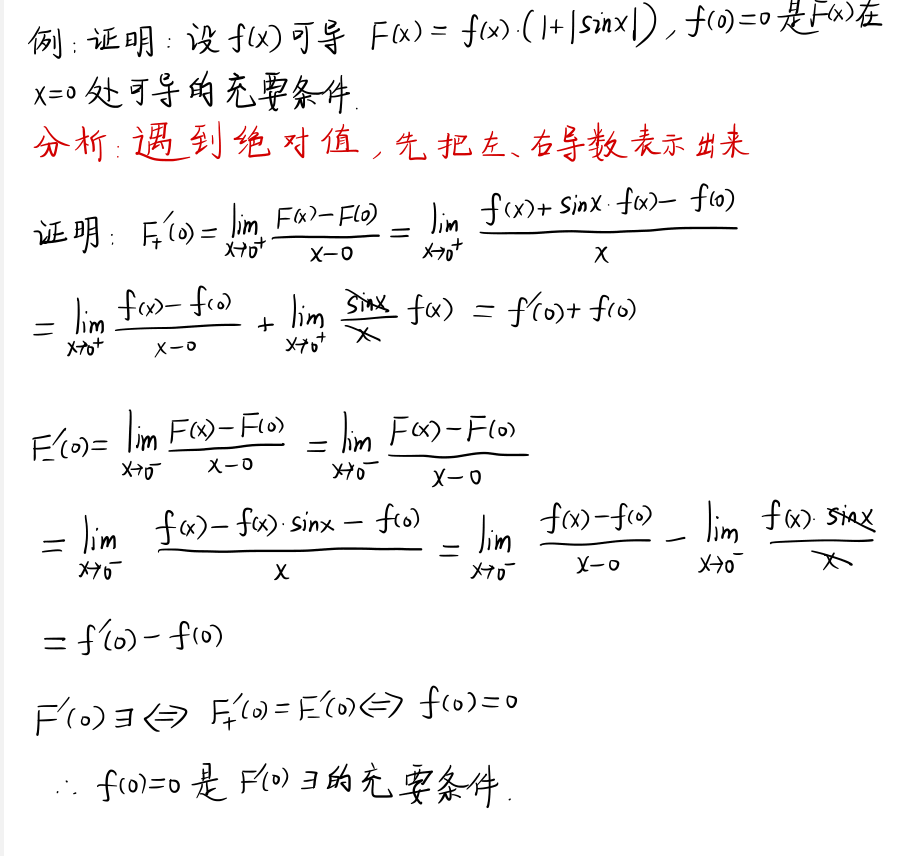 例:证明:设f(x)可导 F(x)=f(x)·(1+|sinx|),f(0)=0是F(x)在
x=0处可导的充要条件.
分析:遇到绝对值,先把左、右导数表示出来
证明: F₊′(0)=lim_{x→0⁺} (F(x)-F(0))/(x-0) = lim_{x→0⁺} (f(x)+sinx·f(x)-f(0))/x
= lim_{x→0⁺} (f(x)-f(0))/(x-0) + lim_{x→0⁺} (sinx/x) f(x) = f′(0)+f(0)
F₋′(0)= lim_{x→0⁻} (F(x)-F(0))/(x-0) = lim_{x→0⁻} (F(x)-F(0))/(x-0)
= lim_{x→0⁻} (f(x)-f(x)·sinx-f(0))/x = lim_{x→0⁻} (f(x)-f(0))/(x-0) - lim_{x→0⁻} (f(x)·sinx)/x
= f′(0)-f(0)
F′(0)∃⇔ F₊′(0)=F₋′(0)⇔ f(0)=0
∴ f(0)=0是F′(0)∃的充要条件.